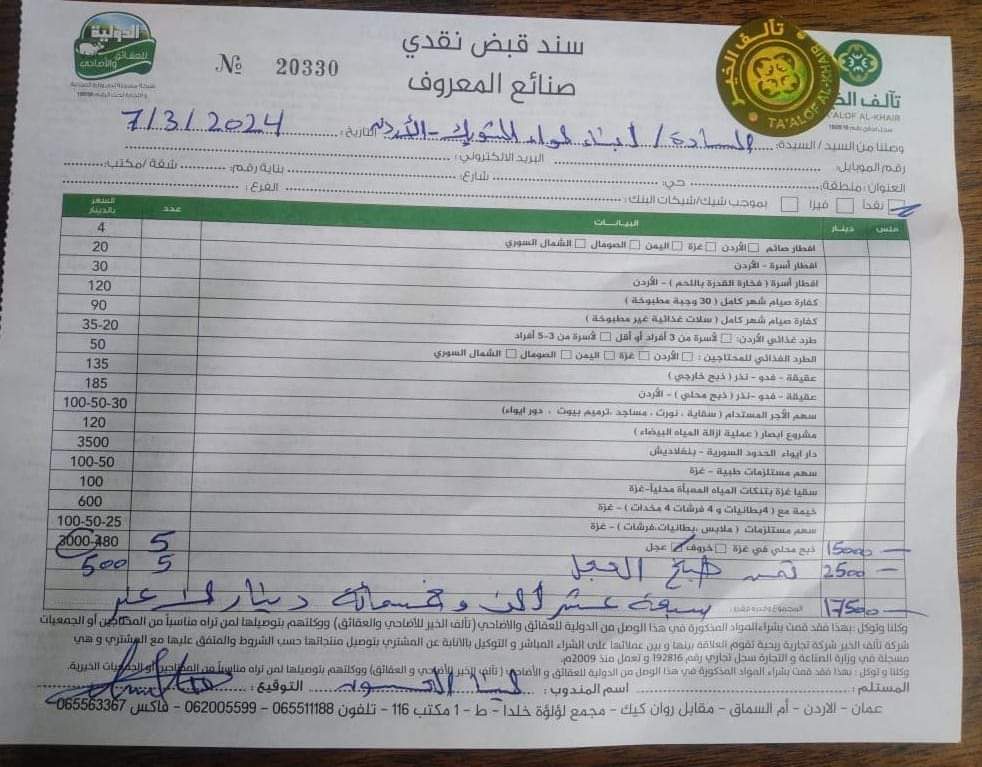 الدولية
للعقائق والأضاحي
سند قبض نقدي
صنائع المعروف
№ 20330
تآلف الخير
TA'ALOF AL-KHAIR
تآلف الخ
TA'ALOF AL-KHAIR
وصلنا من السيد / السيدة: السادة / أبناء لواء الشوبك - الأردن التاريخ: 7/3/2024
رقم الموبايل: البريد الالكتروني:
العنوان: منطقة: حي: شارع: بناية رقم: شقة / مكتب:
نقداً فيزا بموجب شيك/شيكات البنك: الفرع:
فلس دينار البيانات عدد السعر بالدينار
افطار صائم الأردن غزة اليمن الصومال الشمال السوري 4
افطار أسرة - الأردن 20
افطار أسرة ( فخارة القدرة باللحم ) - الأردن 30
كفارة صيام شهر كامل ( 30 وجبة مطبوخة ) 120
كفارة صيام شهر كامل ( سلات غذائية غير مطبوخة ) 90
طرد غذائي الأردن: لأسرة من 3 أفراد أو أقل لأسرة من 3-5 أفراد 35-20
الطرد الغذائي للمحتاجين: الأردن غزة اليمن الصومال الشمال السوري 50
عقيقة - فدو - نذر ( ذبح خارجي ) 135
عقيقة - فدو -نذر ( ذبح محلي ) - الأردن 185
سهم الأجر المستدام ( سقاية ، نورت ، مساجد ،ترميم بيوت ، دور ايواء) 100-50-30
مشروع ابصار ( عملية ازالة المياه البيضاء ) 120
دار ايواء الحدود السورية - بنغلاديش 3500
سهم مستلزمات طبية - غزة 100-50
سقيا غزة بتنكات المياه المعبأة محلياً-غزة 100
خيمة مع ( 4بطانيات و 4 فرشات 4 مخدات ) - غزة 600
سهم مستلزمات ( ملابس ،بطانيات،فرشات ) - غزة 100-50-25
15000 ذبح محلي في غزة خروف عجل 5 3000-480
2500 ثمن طبخ العجل 5 500
17500 المجموع وقدره فقط: سبعة عشر ألف و خمسمائة دينار لا غير
وكلنا ونوكل : بهذا فقد قمت بشراء المواد المذكورة في هذا الوصل من الدولية للعقائق والأضاحي (تآلف الخير للأضاحي والعقائق) ووكلتهم بتوصيلها لمن تراه مناسباً من المحتاجين أو الجمعيات
شركة تآلف الخير شركة تجارية ربحية تقوم العلاقة بينها و بين عملائها على الشراء المباشر و التوكيل بالانابة عن المشتري بتوصيل منتجاتها حسب الشروط والمتفق عليها مع المشتري و هي
مسجلة في وزارة الصناعة و التجارة سجل تجاري رقم 192816 و تعمل منذ 2009م.
وكلنا و نوكل : بهذا فقد قمت بشراء المواد المذكورة في هذا الوصل من الدولية للعقائق و الأضاحي ( تآلف الخير للأضاحي و العقائق) ووكلتهم بتوصيلها لمن تراه مناسباً من المحتاجين أو الجمعيات الخيرية.
المستلم: اسم المندوب: التوقيع:
عمان - الاردن - أم السماق - مقابل روان كيك - مجمع لؤلؤة خلدا - ط - 1 مكتب 116 - تلفون 065511188 - 062005599 - فاكس 065563367